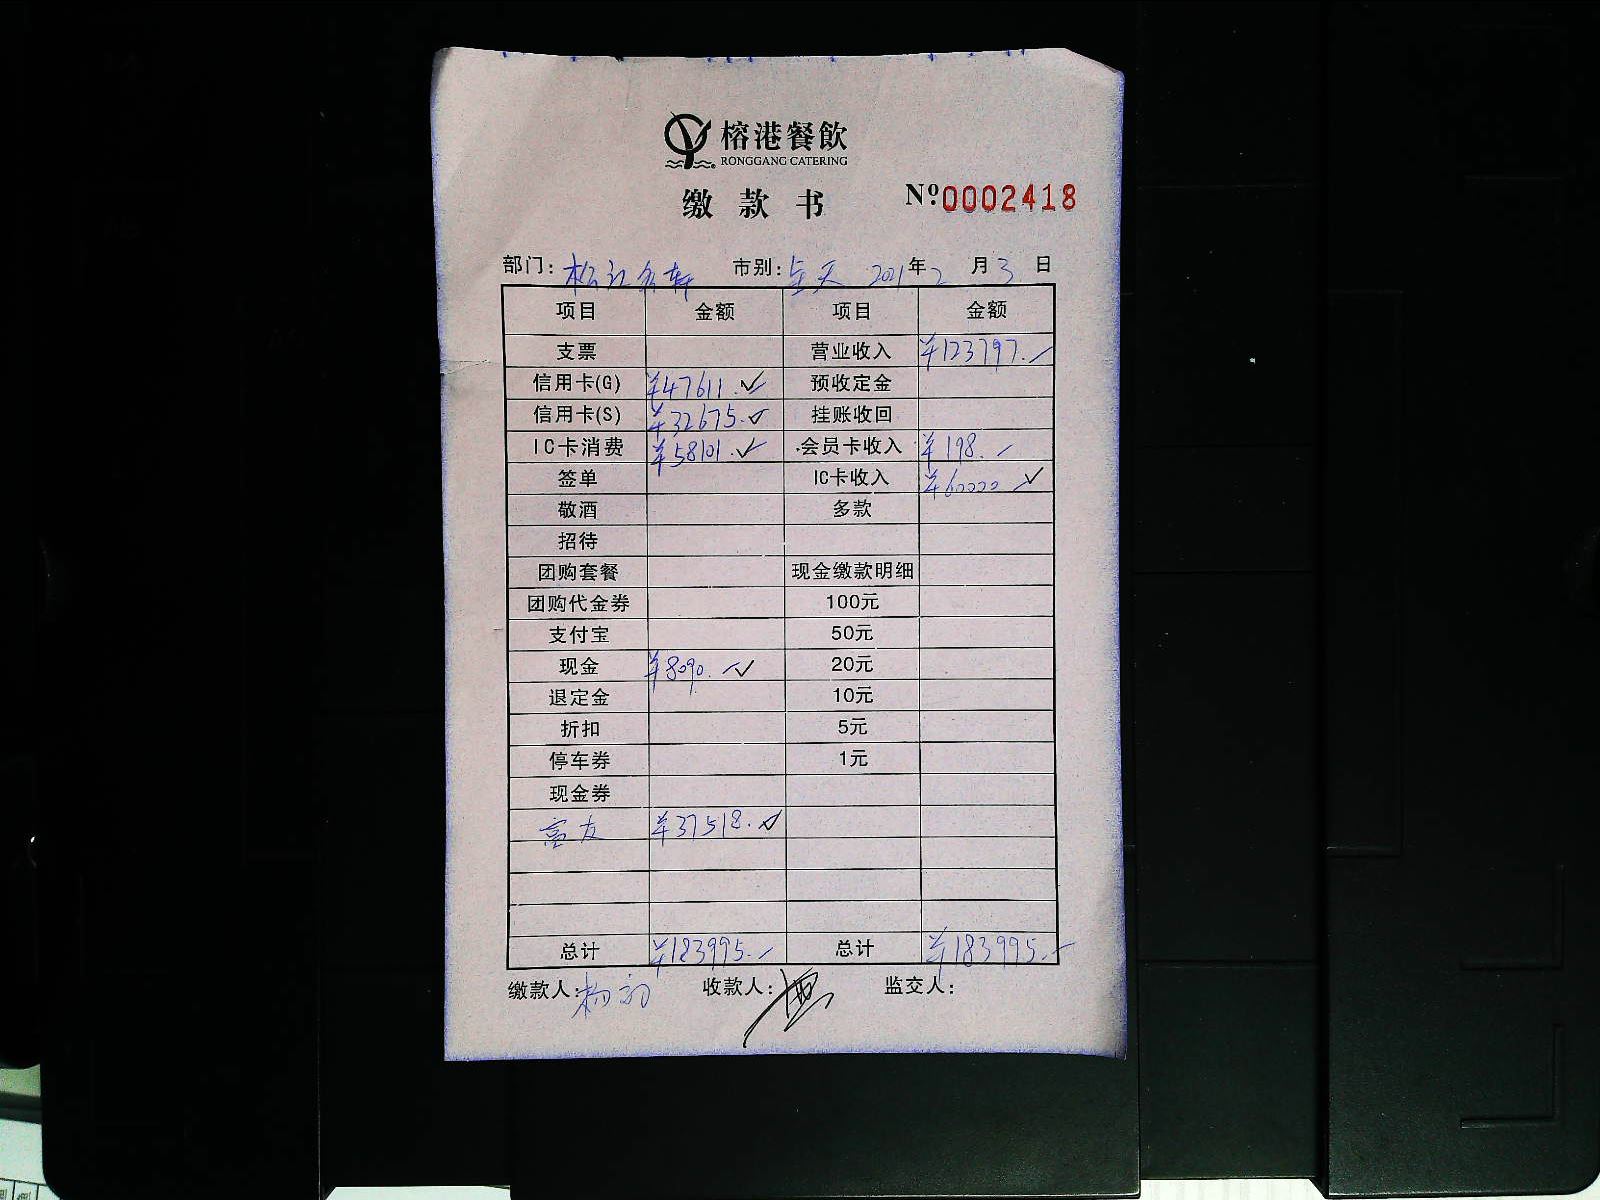 榕港餐飲
RONGGANG CATERING
缴款书 №0002418
部门: 松江名轩 市别: 全天 2021年2月3日
项目 金额 项目 金额
支票 营业收入 ¥123797.
信用卡(G) ¥47611. 预收定金
信用卡(S) ¥32675. 挂账收回
IC卡消费 ¥58101. 会员卡收入 ¥198.
签单 IC卡收入 ¥60000
敬酒 多款
招待
团购套餐 现金缴款明细
团购代金券 100元
支付宝 50元
现金 ¥8090. 20元
退定金 10元
折扣 5元
停车券 1元
现金券
富友 ¥37518.
总计 ¥183995. 总计 ¥183995.
缴款人: 杨 收款人: 监交人: